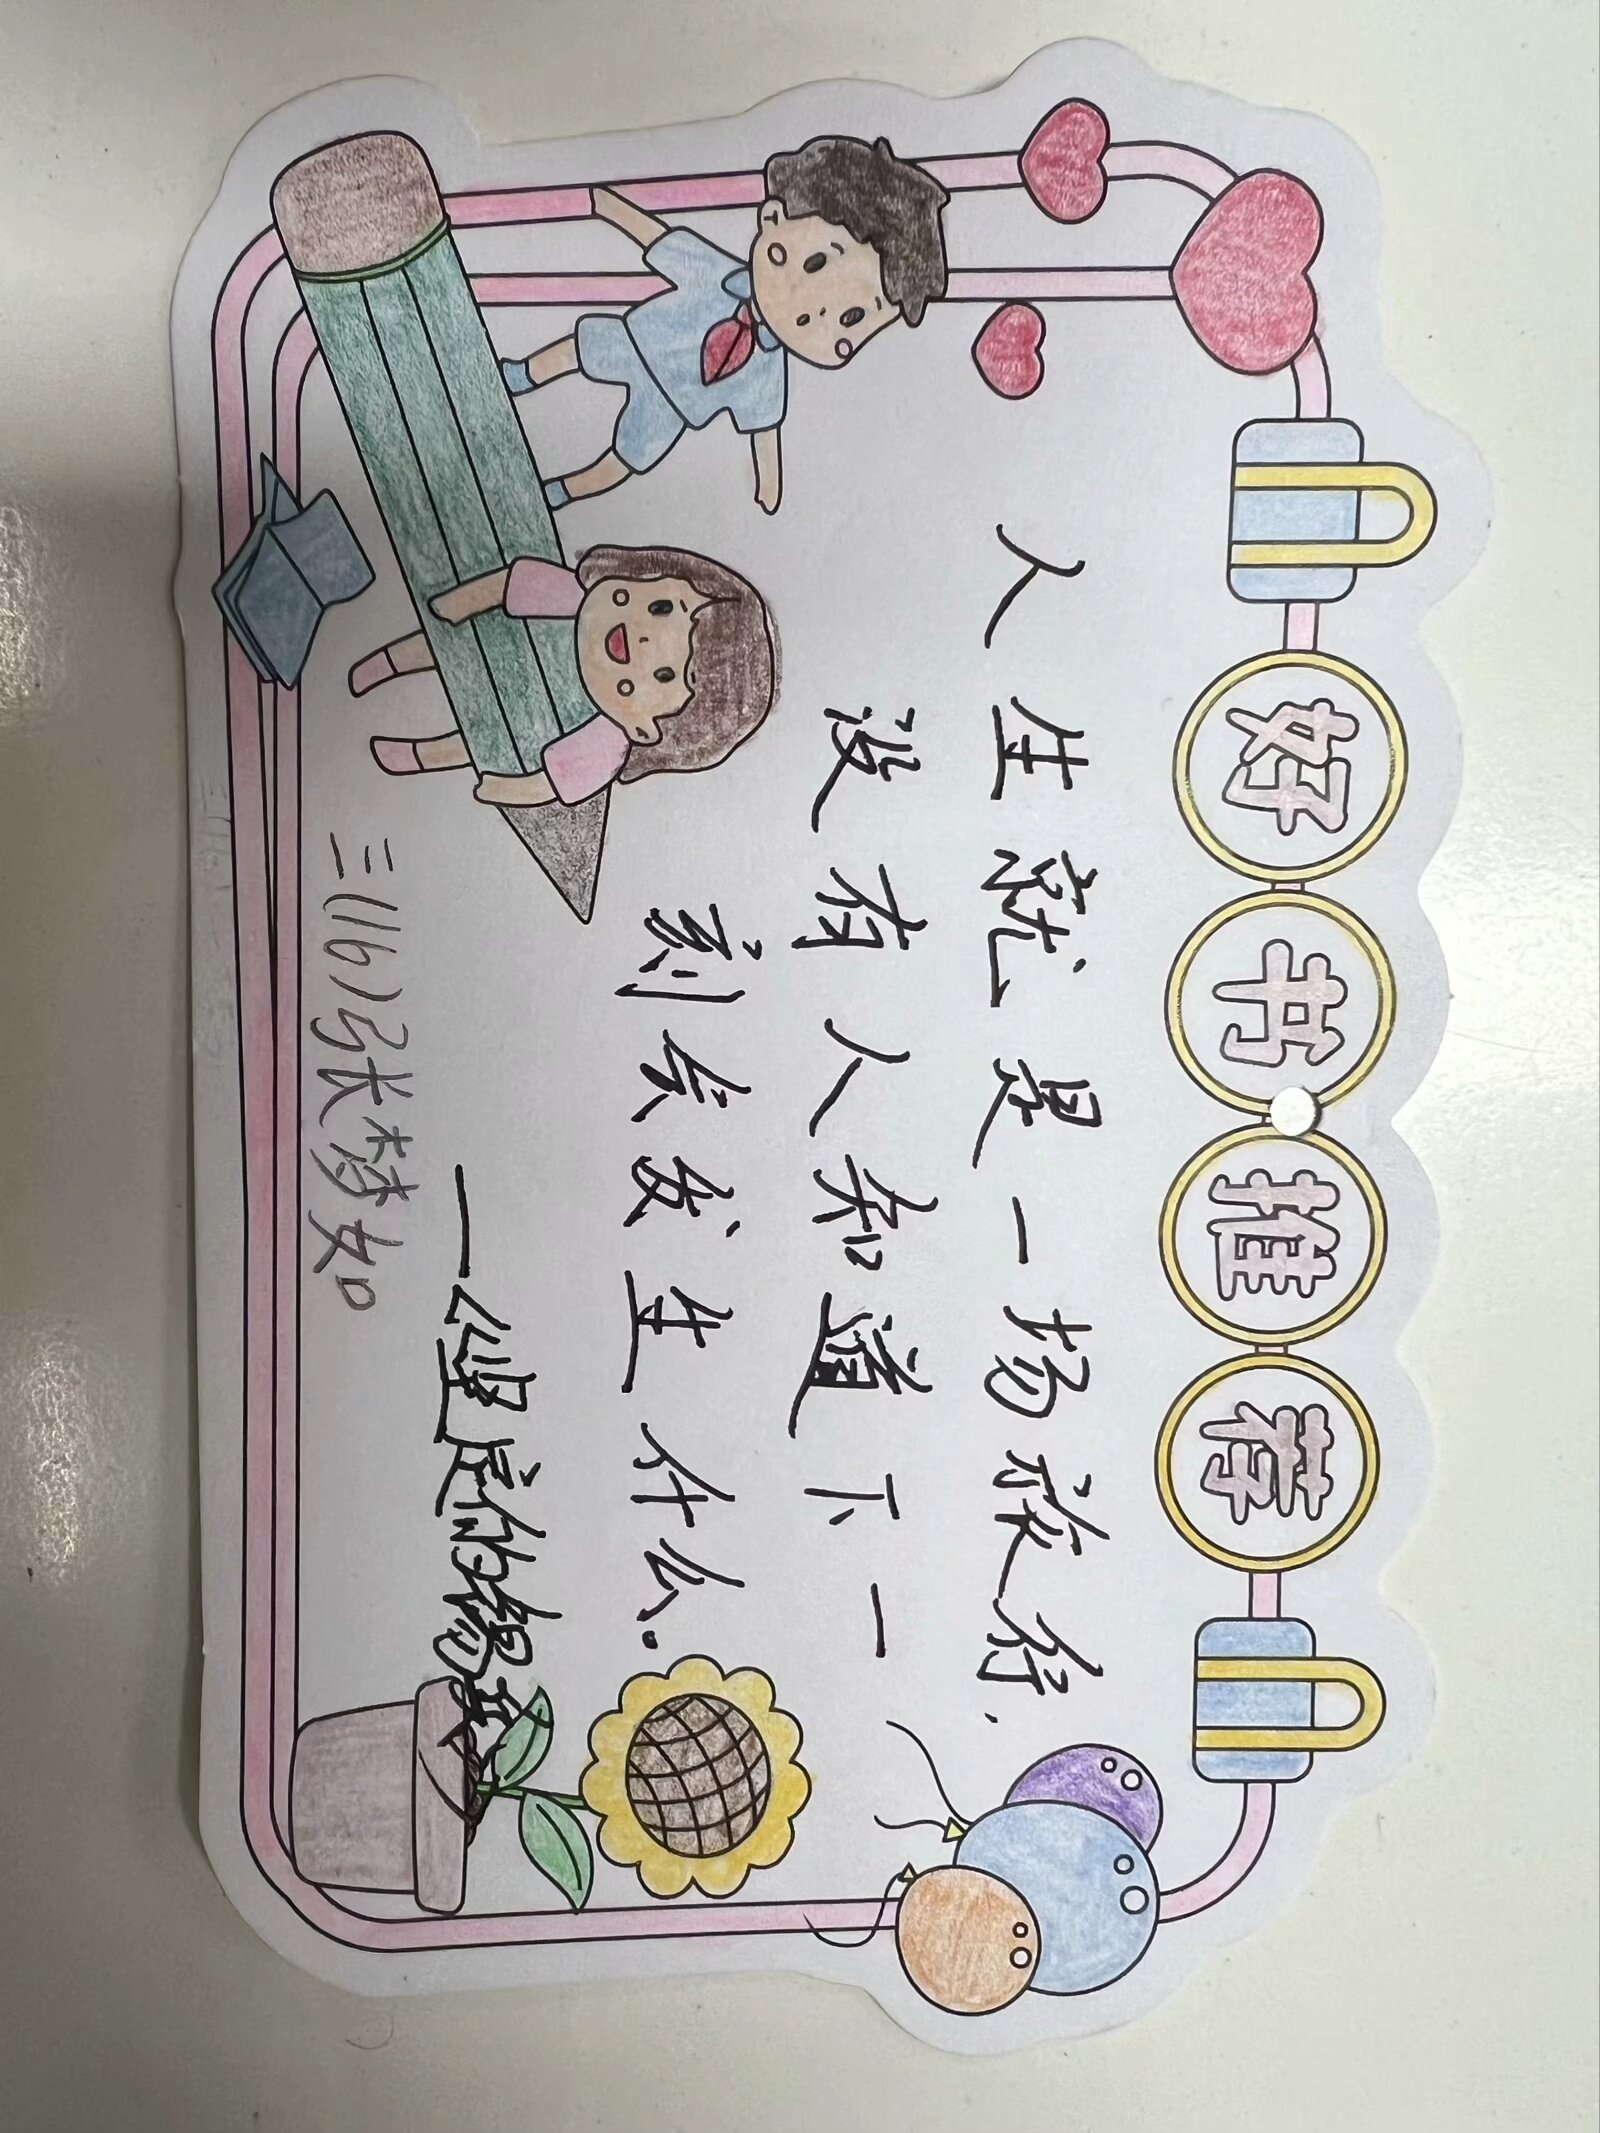 好书推荐
人生就是一场旅行，
没有人知道下一
刻会发生什么。
三(16)张梦如